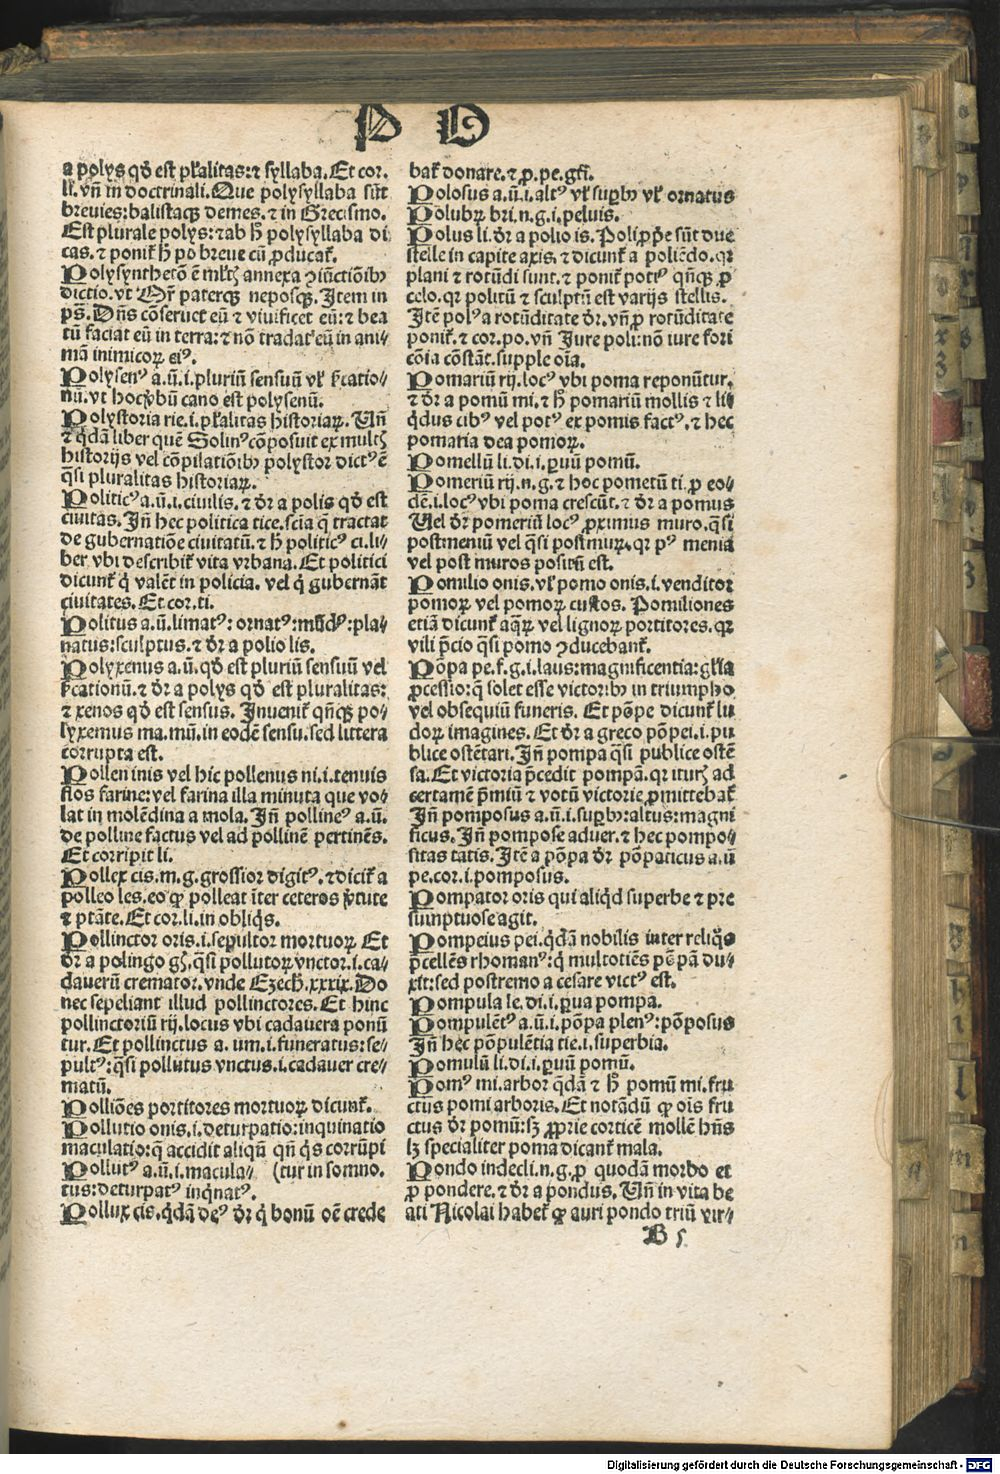 P O
a polys qđ est pl'alitas: ⁊ syllaba. Et cor.
li. vñ in doctrinali. Que polysyllaba sūt
brevies: balistacꝫ demes. ⁊ in Grecismo.
Est plurale polys: ⁊ ab hͦ polysyllaba di
cas. ⁊ poniť hͦ po breue cū ꝓducať.
dictio. vt patercꝫ neposcꝫ. Item in
ps̄. Dñs cōseruet eū ⁊ viuificet eū: ⁊ bea
tū faciat eū in terra: ⁊ nō tradat eū in ani⸗
mā inimicoꝝ eiꝰ.
Polysenꝰ a. ū. i. pluriū sensuū vľ
nū. vt cano est polysenū.
Polystoria rie. i. pľalitas historiaꝝ. Uñ
⁊ q̇dā liber quē Solinꝰ cōposuit ex multꝭ
historijs vel cōpilatiōibꝫ polystor dictꝰ ē
q̄si pluralitas historiaꝝ.
Politicꝰ a. ū. i. ciuilis. ⁊ dr̄ a polis qđ est
ciuitas. Iñ hec politica tice. scīa q̄ tractat
de gubernatiōe ciuitatū. ⁊ hͦ politicꝰ ci. li⸗
ber vbi describiť vita vrbana. Et politici
dicunť q̇ valēt in policia. vel q̇ gubernāt
ciuitates. Et cor. ti.
Politus a. ū. limatꝰ: ornatꝰ: mūdꝰ: pla⸗
natus: sculptus. ⁊ dr̄ a polio lis.
Polyxenus a. ū. qđ est pluriū sensuū vel
⁊ dr̄ a polys qđ est pluralitas:
⁊ xenos qđ est sensus. Inueniť qñcꝫ po⸗
lyxemus ma. mū. in eodē sensu. sed littera
corrupta est.
Pollen inis vel hic pollenus ni. i. tenuis
flos farine: vel farina illa minuta que vo⸗
lat in molēdina a mola. Iñ pollineꝰ a. ū.
de polline factus vel ad pollinē pertinēs.
Et corripit li.
Pollex cis. m. g. grossior digitꝰ. ⁊ diciť a
polleo les. eo ꝙ polleat īter ceteros v̄tute
⁊ ptāte. Et cor. li. in obliq̇s.
Pollinctor oris. i. sepultor mortuoꝝ Et
dr̄ a polingo gꝭ. q̄si pollutoꝝ vnctor. i. ca⸗
dauerū cremator. vnde Ezech̄. xxxix. Do
nec sepeliant illud pollinctores. Et hinc
pollinctoriū rij. locus vbi cadauera ponū
tur. Et pollinctus a. um. i. funeratus: se⸗
pultꝰ: q̄si pollutus vnctus. i. cadauer cre⸗
matū.
Polliōes portitores mortuoꝝ dicunť.
Pollutio onis. i. deturpatio: inquinatio
maculatio: q̄ accidit aliqñ qñ q̇s corrūpi
Pollutꝰ a. ū. i. macula⸗ (tur in somno.
tus: deturpatꝰ inq̇natꝰ.
Pollux cis. q̇dā deꝰ dr̄ q̇ bonū oē crede
bať donare. ⁊ ꝓ. pe. gťi.
Polosus a. ū. i. altꝰ vľ supbꝰ vľ ornatus
Polubꝝ bri. n. g. i. peluis.
Polus li. dr̄ a polio is. Poli ꝓp̄e sūt due
stelle in capite axis. ⁊ dicunť a poliēdo. qꝛ
plani ⁊ rotūdi sunt. ⁊ poniť potiꝰ qñcꝫ ꝓ
celo. qꝛ politū ⁊ sculptū est varijs stellis.
Itē polꝰ a rotūditate dr̄. vñ ꝓ rotūditate
poniť. ⁊ cor. po. vñ Iure poli: nō iure fori
cōia cōstāt. supple oīa.
Pomariū rij. locꝰ vbi poma reponūtur.
⁊ dr̄ a pomū mi. ⁊ hͦ pomariū mollis ⁊ li⸗
q̇dus cibꝰ vel potꝰ ex pomis factꝰ. ⁊ hec
pomaria dea pomoꝝ.
Pomellū li. di. i. ꝑuū pomū.
Pomeriū rij. n. g. ⁊ hoc pometū ti. ꝓ eo⸗
dē. i. locꝰ vbi poma crescūt. ⁊ dr̄ a pomus
Uel dr̄ pomeriū locꝰ ꝓximus muro. q̄si
postmeniū vel q̄si postmuꝝ. qꝛ pꝰ menia
vel post muros positū est.
Pomilio onis. vľ pomo onis. i. venditor
pomoꝝ vel pomoꝝ custos. Pomiliones
etiā dicunť aq̄ꝝ vel lignoꝝ portitores. qꝛ
vili p̄cio q̄si pomo ꝯducebanť.
Pōpa pe. f. g. i. laus: magnificentia: gľia
ꝓcessio: q̄ solet esse victoribꝫ in triumpho
vel obsequiū funeris. Et pōpe dicunť lu
doꝝ imagines. Et dr̄ a greco pōpei. i. pu
blice ostētari. Iñ pompa q̄si publice ostē
sa. Et victoria p̄cedit pompā. qꝛ iturꝭ ad
certamē p̄miū ⁊ votū victorie ꝓmittebať
Iñ pomposus a. ū. i. supbꝰ: altus: magni
ficus. Iñ pompose aduer. ⁊ hec pompo⸗
sitas tatis. Itē a pōpa dr̄ pōpaticus a. ū
pe. cor. i. pomposus.
Pompator oris qui aliq̇d superbe ⁊ pre
sumptuose agit.
Pompeius pei. q̇dā nobilis inter reliq̇s
p̄cellēs rhomanꝰ: q̇ multotiēs pē pā du⸗
xit: sed postremo a cesare victꝰ est.
Pompula le. di. i. ꝑua pompa.
Pompulētꝰ a. ū. i. pōpa plenꝰ: pōposus
Iñ hec pōpulētia tie. i. superbia.
Pomulū li. di. i. ꝑuū pomū.
Pomꝰ mi. arbor q̇dā ⁊ hͦ pomū mi. fru
ctus pomi arboris. Et notādū ꝙ oīs fru
ctus dr̄ pomū: sꝫ ꝓprie corticē mollē hñs
lꝫ specialiter poma dicanť mala.
Pondo indecli. n. g. ꝓ quodā morbo et
ꝓ pondere. ⁊ dr̄ a pondus. Uñ in vita be
ati Nicolai habeť ꝙ auri pondo triū vir⸗
B 5
Digitalisierung gefördert durch die Deutsche Forschungsgemeinschaft - DFG